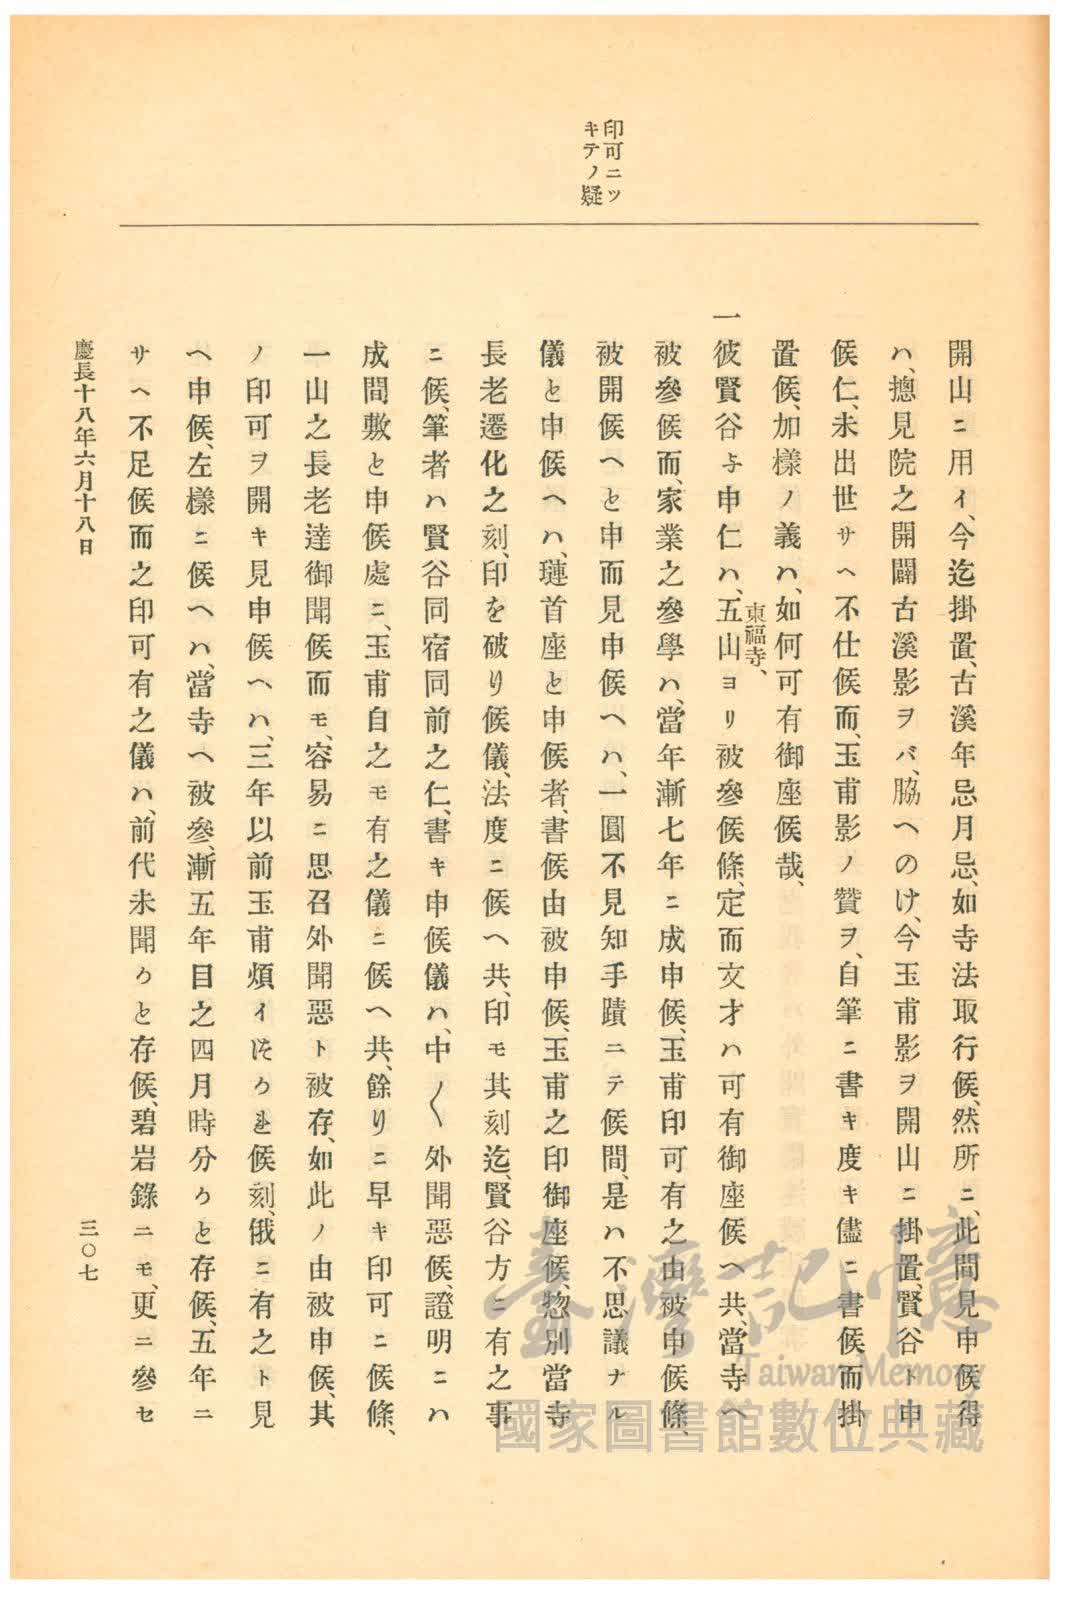 印可ニツ
キテノ疑
開山ニ用イ、今迄掛置、古溪年忌月忌、如寺法取行候、然所ニ、此間見申候得
ハ、摠見院之開闢古溪影ヲバ、脇ヘのけ、今玉甫影ヲ開山ニ掛置、賢谷ト申
候仁、未出世サヘ不仕候而、玉甫影ノ贊ヲ、自筆ニ書キ度キ儘ニ書候而掛
置候、加樣ノ義ハ、如何可有御座候哉、
東福寺、
一彼賢谷与申仁ハ、五山ヨリ被參候條、定而文才ハ可有御座候ヘ共、當寺ヘ
被參候而、家業之參學ハ、當年漸七年ニ成申候、玉甫印可有之由被申候條、
被開候ヘと申而見申候ヘハ、一圓不見知手蹟ニテ候間、是ハ不思議ナル
儀と申候ヘハ、璉首座と申候者、書候由被申候、玉甫之印御座候、惣別當寺
長老遷化之刻、印を破り候儀、法度ニ候ヘ共、印モ其刻迄、賢谷方ニ有之事
ニ候、筆者ハ賢谷同宿同前之仁、書キ申候儀ハ、中〱外聞惡候、證明ニハ
成間敷と申候處ニ、玉甫自之モ有之儀ニ候ヘ共、餘りニ早キ印可ニ候條、
一山之長老達御聞候而モ、容易ニ思召外聞惡ト被存、如此ノ由被申候、其
ノ印可ヲ開キ見申候ヘハ、三年以前玉甫煩イ候刻、俄ニ有之ト見
ヘ申候、左樣ニ候ヘハ、當寺ヘ被參、漸五年目之四月時分かと存候、五年ニ
サヘ不足候而之印可有之儀ハ、前代未聞かと存候、碧岩錄ニモ、更ニ參セ
慶長十八年六月十八日
三〇七
臺灣記憶
Taiwan Memory
國家圖書館數位典藏